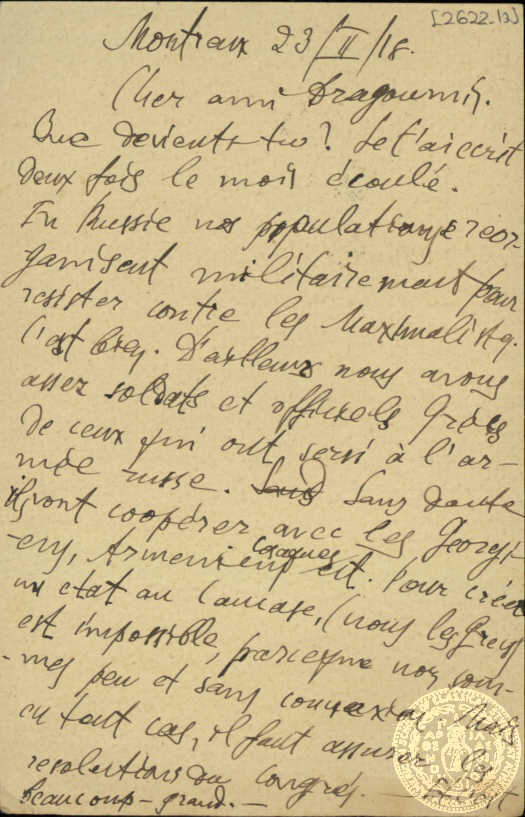 [2622.12]
Montreux 23/II/18.
Cher ami Dragoumis.
Que devients-tu? Je t'ai ecrit
deux fois le mois écoulé.
En Russie nos populations reor-
ganisent militairement pour
resister contre les Maximalistes.
C'est bien. D'ailleurs nous avons
assez soldats et officiels Grècs
de ceux qui ont servi à l'ar-
mée russe. Sans doute
ils vont coopérer avec les Georgi-
ens, Armeniens cosaques ect. Pour créer
un etat au Caucase, (nous les Grecs
est impossible, parceque nos som-
mes peu et sans connexion. Mais
en tout cas, il faut assurer les
resolutions du Congrés.
beaucoup-grand.-